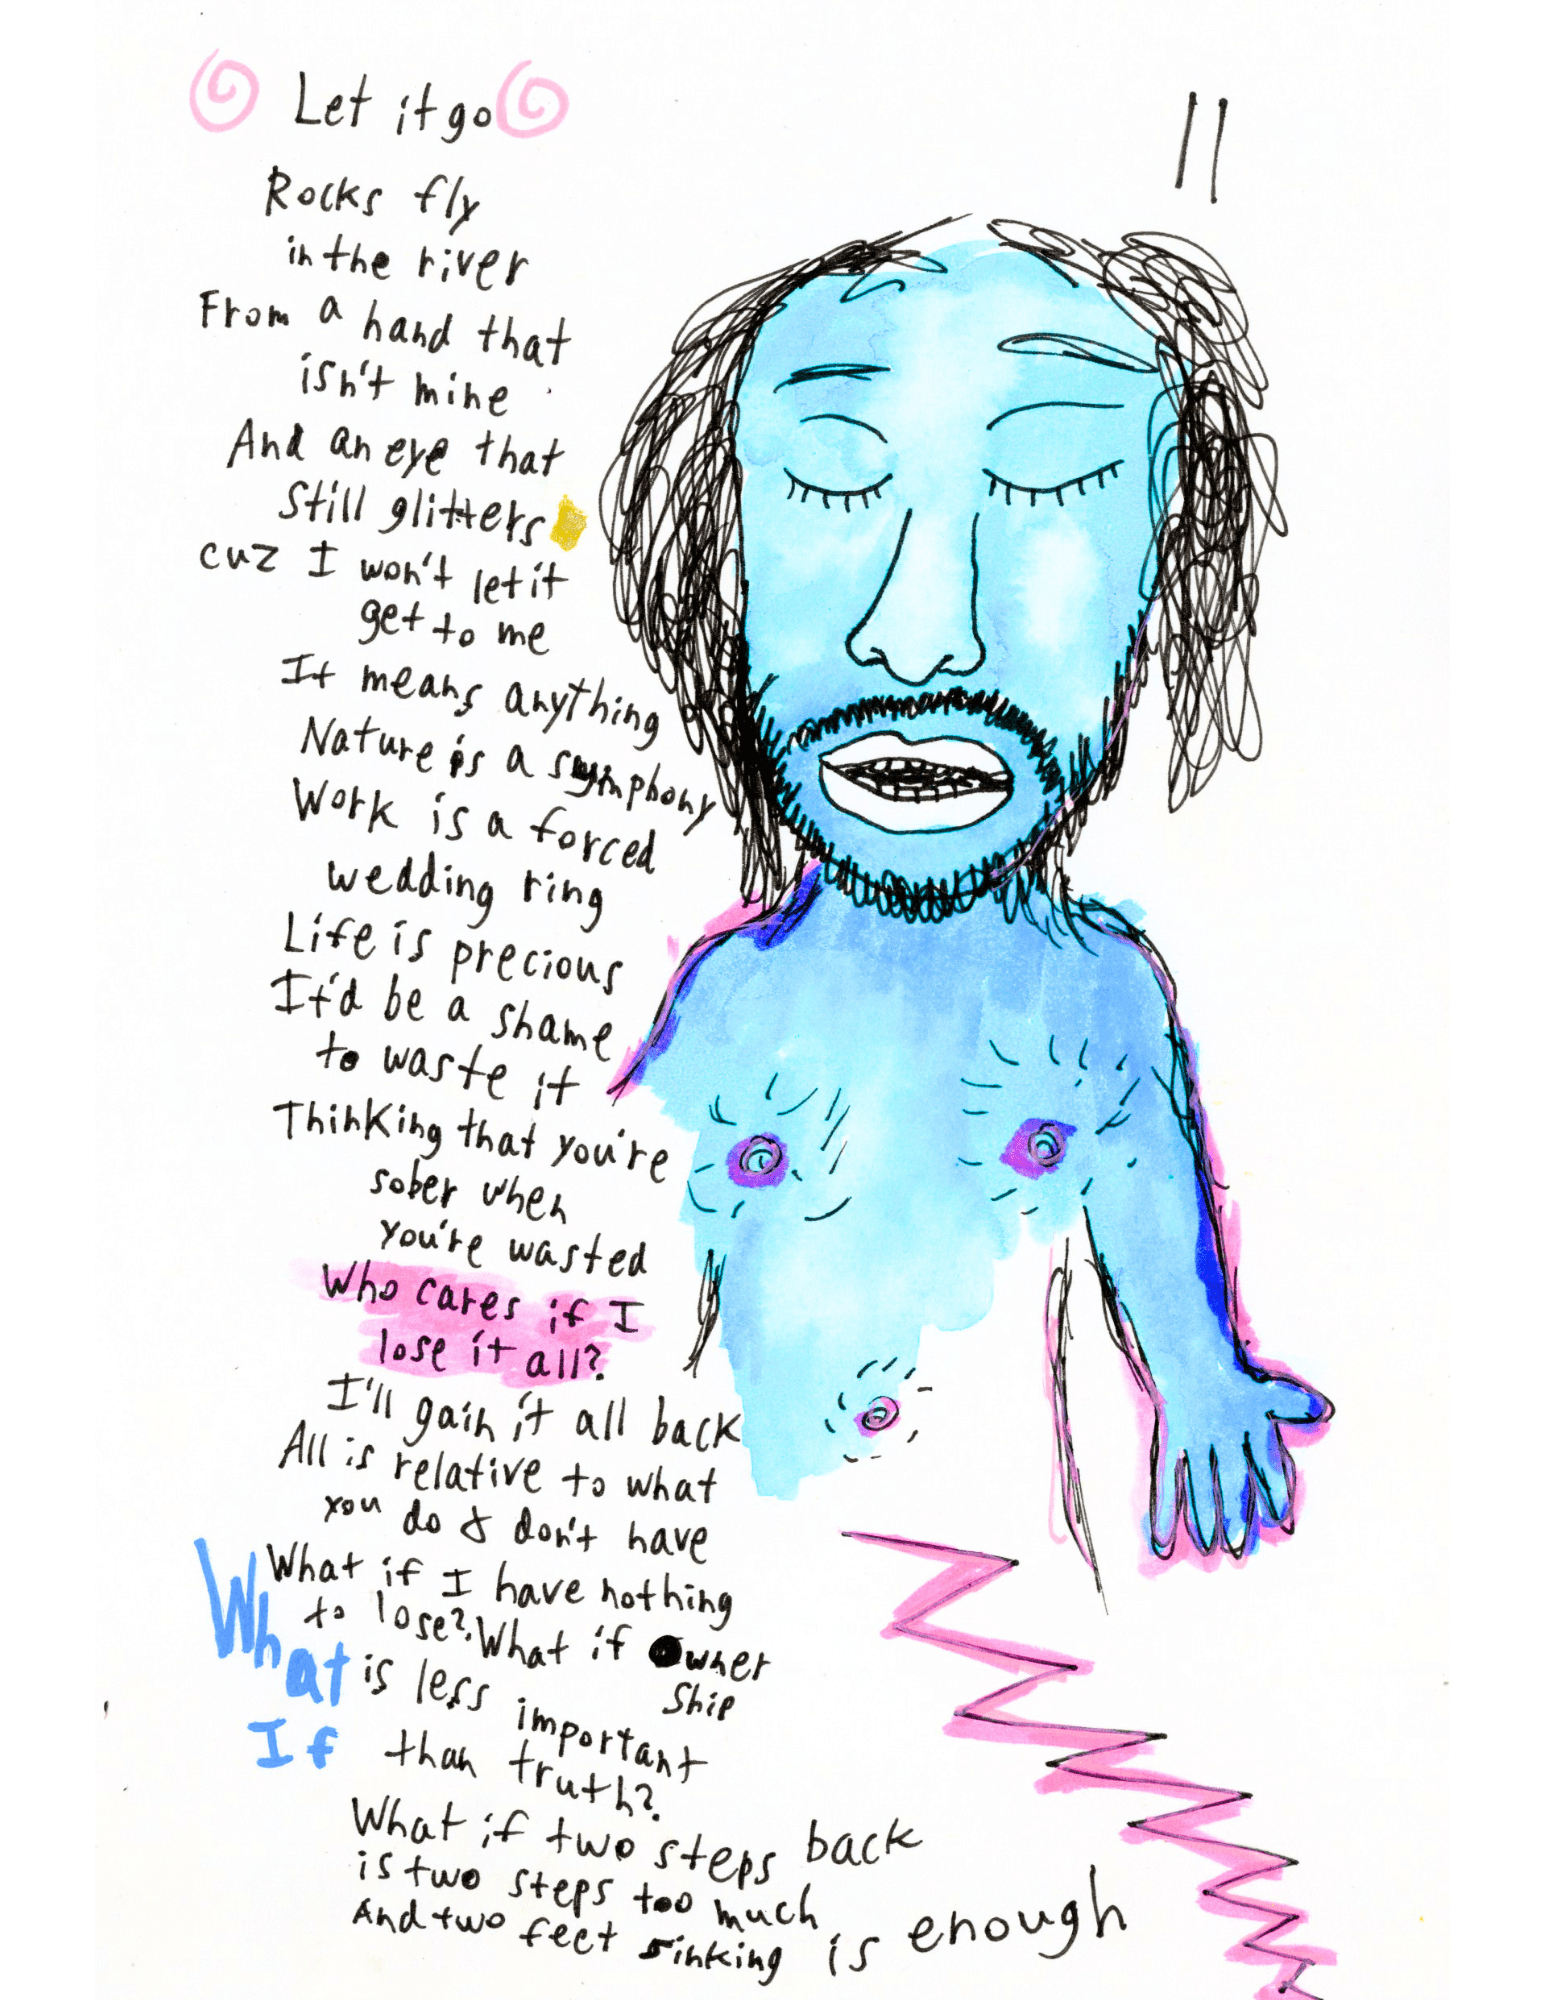 Let it go
Rocks fly
in the river
From a hand that
isn't mine
And an eye that
still glitters
cuz I won't let it
get to me
It means anything
Nature is a symphony
Work is a forced
wedding ring
Life is precious
It'd be a shame
to waste it
Thinking that you're
sober when
you're wasted
Who cares if I
lose it all?
I'll gain it all back
All is relative to what
you do & don't have
What if I have nothing
to lose? What if owner
ship
is less important
than truth?
What
If
What if two steps back
is two steps too much
And two feet sinking is enough